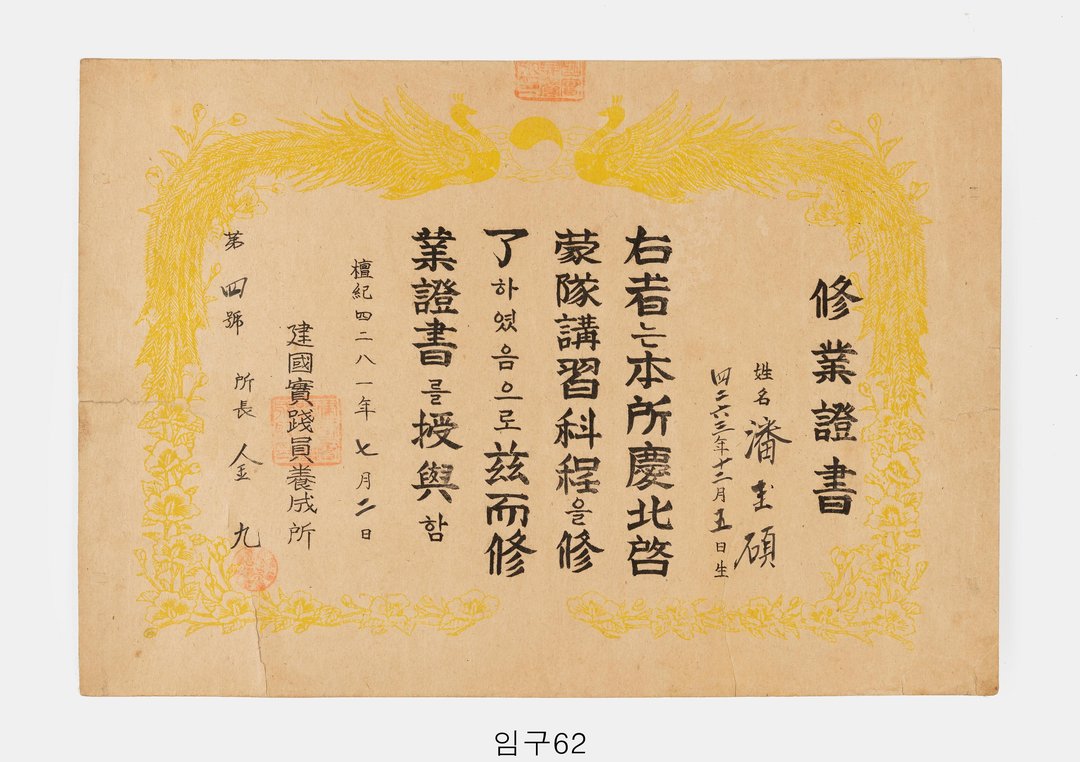 修業證書
姓名 潘圭碩
四二六三年十二月五日生
右者는本所慶北啓
蒙隊講習科程을修
了하였음으로玆而修
業證書를授與함
檀紀四二八一年七月二日
建國實踐員養成所
所長 金九
第四號
임구62